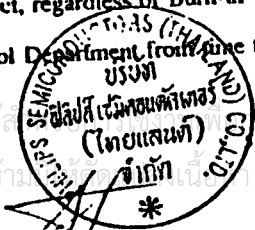 ct, regardless of Burn-in
ol Department from time t
PHILIPS SEMICONDUCTORS (THAILAND) CO.,LTD.
บริษัท
ฟิลิปส์ เซมิคอนดักเตอร์
(ไทยแลนด์)
จำกัด
*